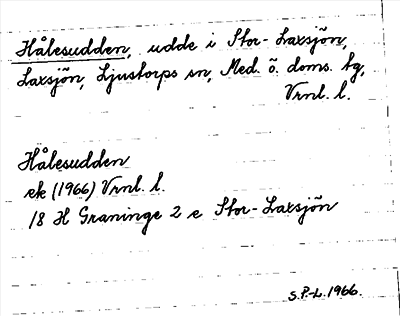 Hålesudden, udde i Stor-Laxsjön,
Laxsjön, Ljustorps sn, Med. ö. doms. tg,
Vrnl. l.
Hålesudden
ek (1966) Vrnl. l.
18 H Graninge 2 e Stor-Laxsjön
S.P.-L. 1966.